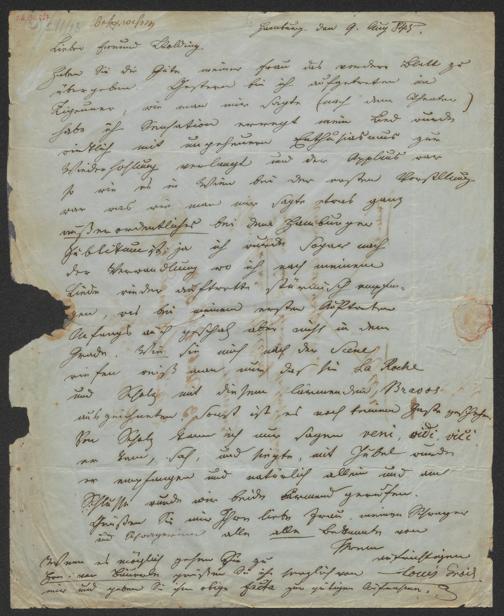 Hamburg den 9. Aug 845.
Lieber Freund Kolding.
Haben Sie die Güte meiner Frau das andere Blatt zu
übergeben. Gestern bin ich aufgetreten im
Zigeuner wie man mir sagte (nach dem Theater)
habe ich Sensation erregt mein Lied wurde
wirklich mit ungeheuern Enthusiasmus zur
Wiederhohlung verlangt und der Applaus war
so wie er in Wien bei der ersten Vorstellung
war was wie man mir sagte etwas ganz
außerordentliches bei dem Hamburger
Publikum ist, ja ich wurde sogar nach
der Verwandlung wo ich nach meinem
Liede wieder auftrette stürmisch empfan-
gen, was bei meinem ersten Auftreten
Anfangs auch geschah aber nicht in dem
Grade. Wie sie mich nach der Scene
riefen weiß man mir, daß sie La Roche
und Scholz mit diesem lärmenden Bravos
auszeichneten sonst ist es noch keinem Gaste geschehen
Von Scholz kann ich nur sagen veni, vidi, vici
er kam, sah, und siegte, mit Jubel wurde
er empfangen und natürlich allein und am
Schlusse wurde wir beide lärmend gerufen.
Grüßen Sie mir Ihre liebe Frau, meinen Schwager
und Schwägerinn alle alle Bekannte von
Ihrem
aufrichtigen
Louis Grois
Wenn es möglich gehen Sie zu
und geben Sie ihm obige Facta zur gütigen Aufnahme.